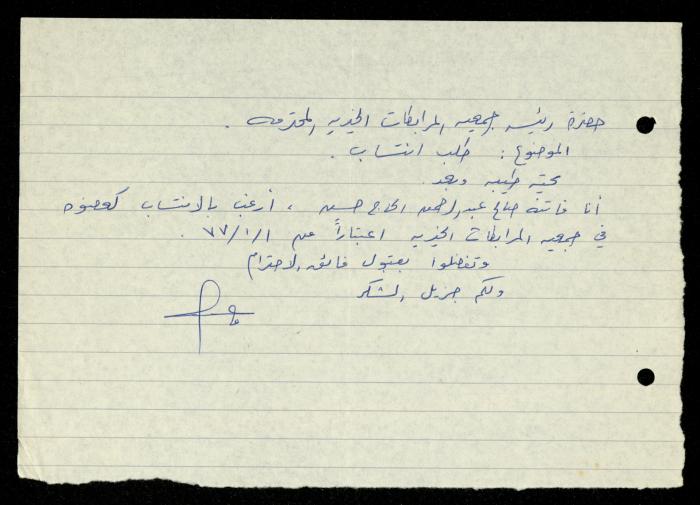 حضرة رئيسة جمعية المرابطات الخيرية المحترمة .
الموضوع : طلب انتساب .
تحية طيبة وبعد
أنا فاتنة صالح عبد الرحمن الحاج حسين ، أرغب بالانتساب كعضوه
في جمعية المرابطات الخيرية اعتباراً من ٧٧/١/١ .
وتفضلوا بقبول فائق الاحترام
ولكم جزيل الشكر